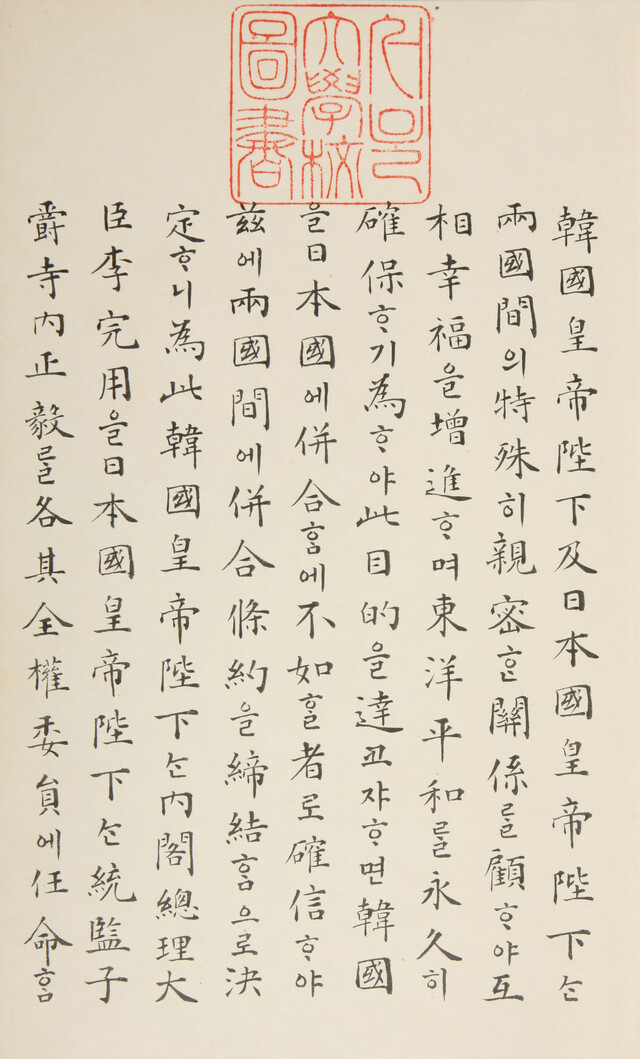 서울大學校圖書
韓國皇帝陛下及日本國皇帝陛下ᄂᆞᆫ
兩國間의特殊히親密ᄒᆞᆫ關係ᄅᆞᆯ顧ᄒᆞ야互
相幸福을增進ᄒᆞ며東洋平和ᄅᆞᆯ永久히
確保ᄒᆞ기為ᄒᆞ야此目的을達코쟈ᄒᆞ면韓國
을日本國에併合ᄒᆞᆷ에不如ᄒᆞᆯ者로確信ᄒᆞ야
玆에兩國間에併合條約을締結ᄒᆞᆷ으로決
定ᄒᆞ니為此韓國皇帝陛下ᄂᆞᆫ內閣總理大
臣李完用을日本國皇帝陛下ᄂᆞᆫ統監子
爵寺內正毅ᄅᆞᆯ各其全權委員에任命ᄒᆞᆷ